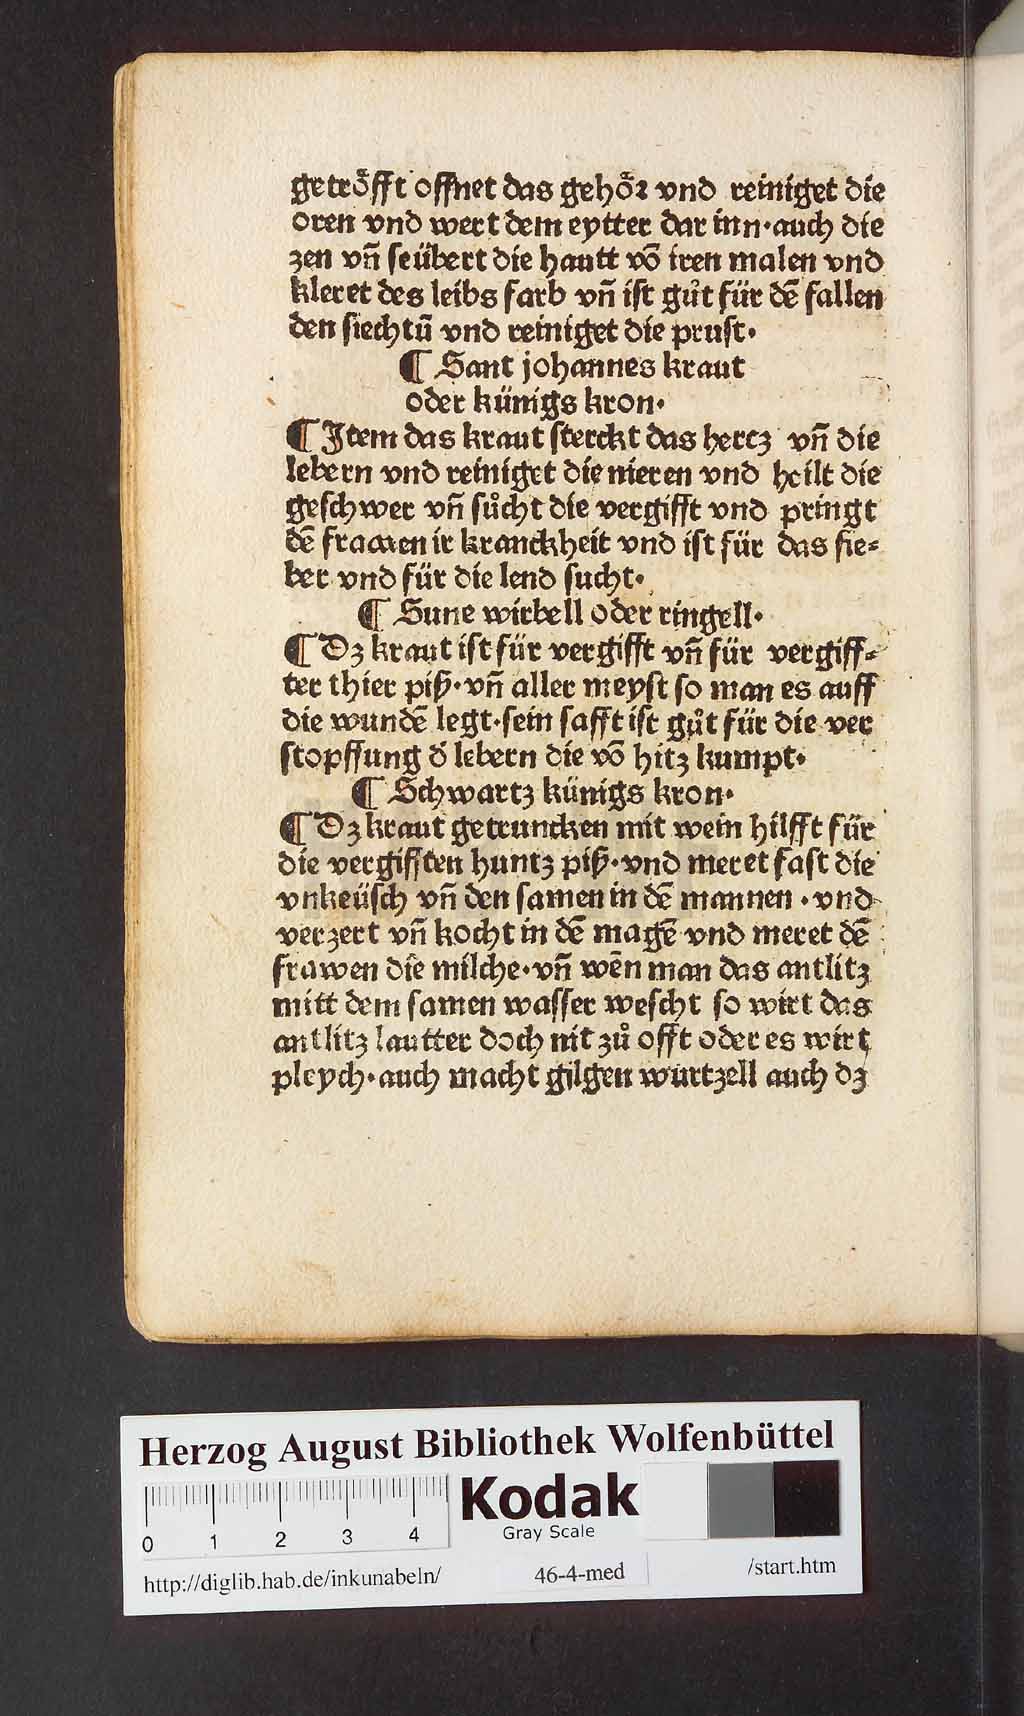 getroͤfft offnet das gehoͤꝛ vnd reiniget die
oren vnd wert dem eytter dar inn·auch die
zen vn̄ seübert die hautt vō iren malen vnd
kleret des leibs farb vn̄ ist guͦt für dē fallen
den siechtū vnd reiniget die prust·
¶ Sant johannes kraut
oder künigs kron·
¶ Item das kraut sterckt das hertz vn̄ die
lebern vnd reiniget die nieren vnd heilt die
geschwer vn̄ suͦcht die vergifft vnd pringt
dē frawen ir kranckheit vnd ist für das fie⸗
ber vnd für die lend sucht·
¶ Sune wirbell oder ringell·
¶ Dz kraut ist für vergifft vn̄ für vergiff⸗
ter thier piß·vn̄ aller meyst so man es auff
die wundē legt·sein safft ist guͦt für die ver
stopffung d̄ lebern die vō hitz kumpt·
¶ Schwartz künigs kron·
¶ Dz kraut getruncken mit wein hilfft für
die vergifften huntz piß·vnd meret fast die
vnkeüsch vn̄ den samen in dē mannen·vnd
verzert vn̄ kocht in dē magē vnd meret dē
frawen die milche·vn̄ wēn man das antlitz
mitt dem samen wasser wescht so wirt das
antlitz lautter doch nit zuͦ offt oder es wirt
pleych·auch macht gilgen wurtzell auch dz
Herzog August Bibliothek Wolfenbüttel
Kodak
Gray Scale
0 1 2 3 4
http://diglib.hab.de/inkunabeln/ 46-4-med /start.htm